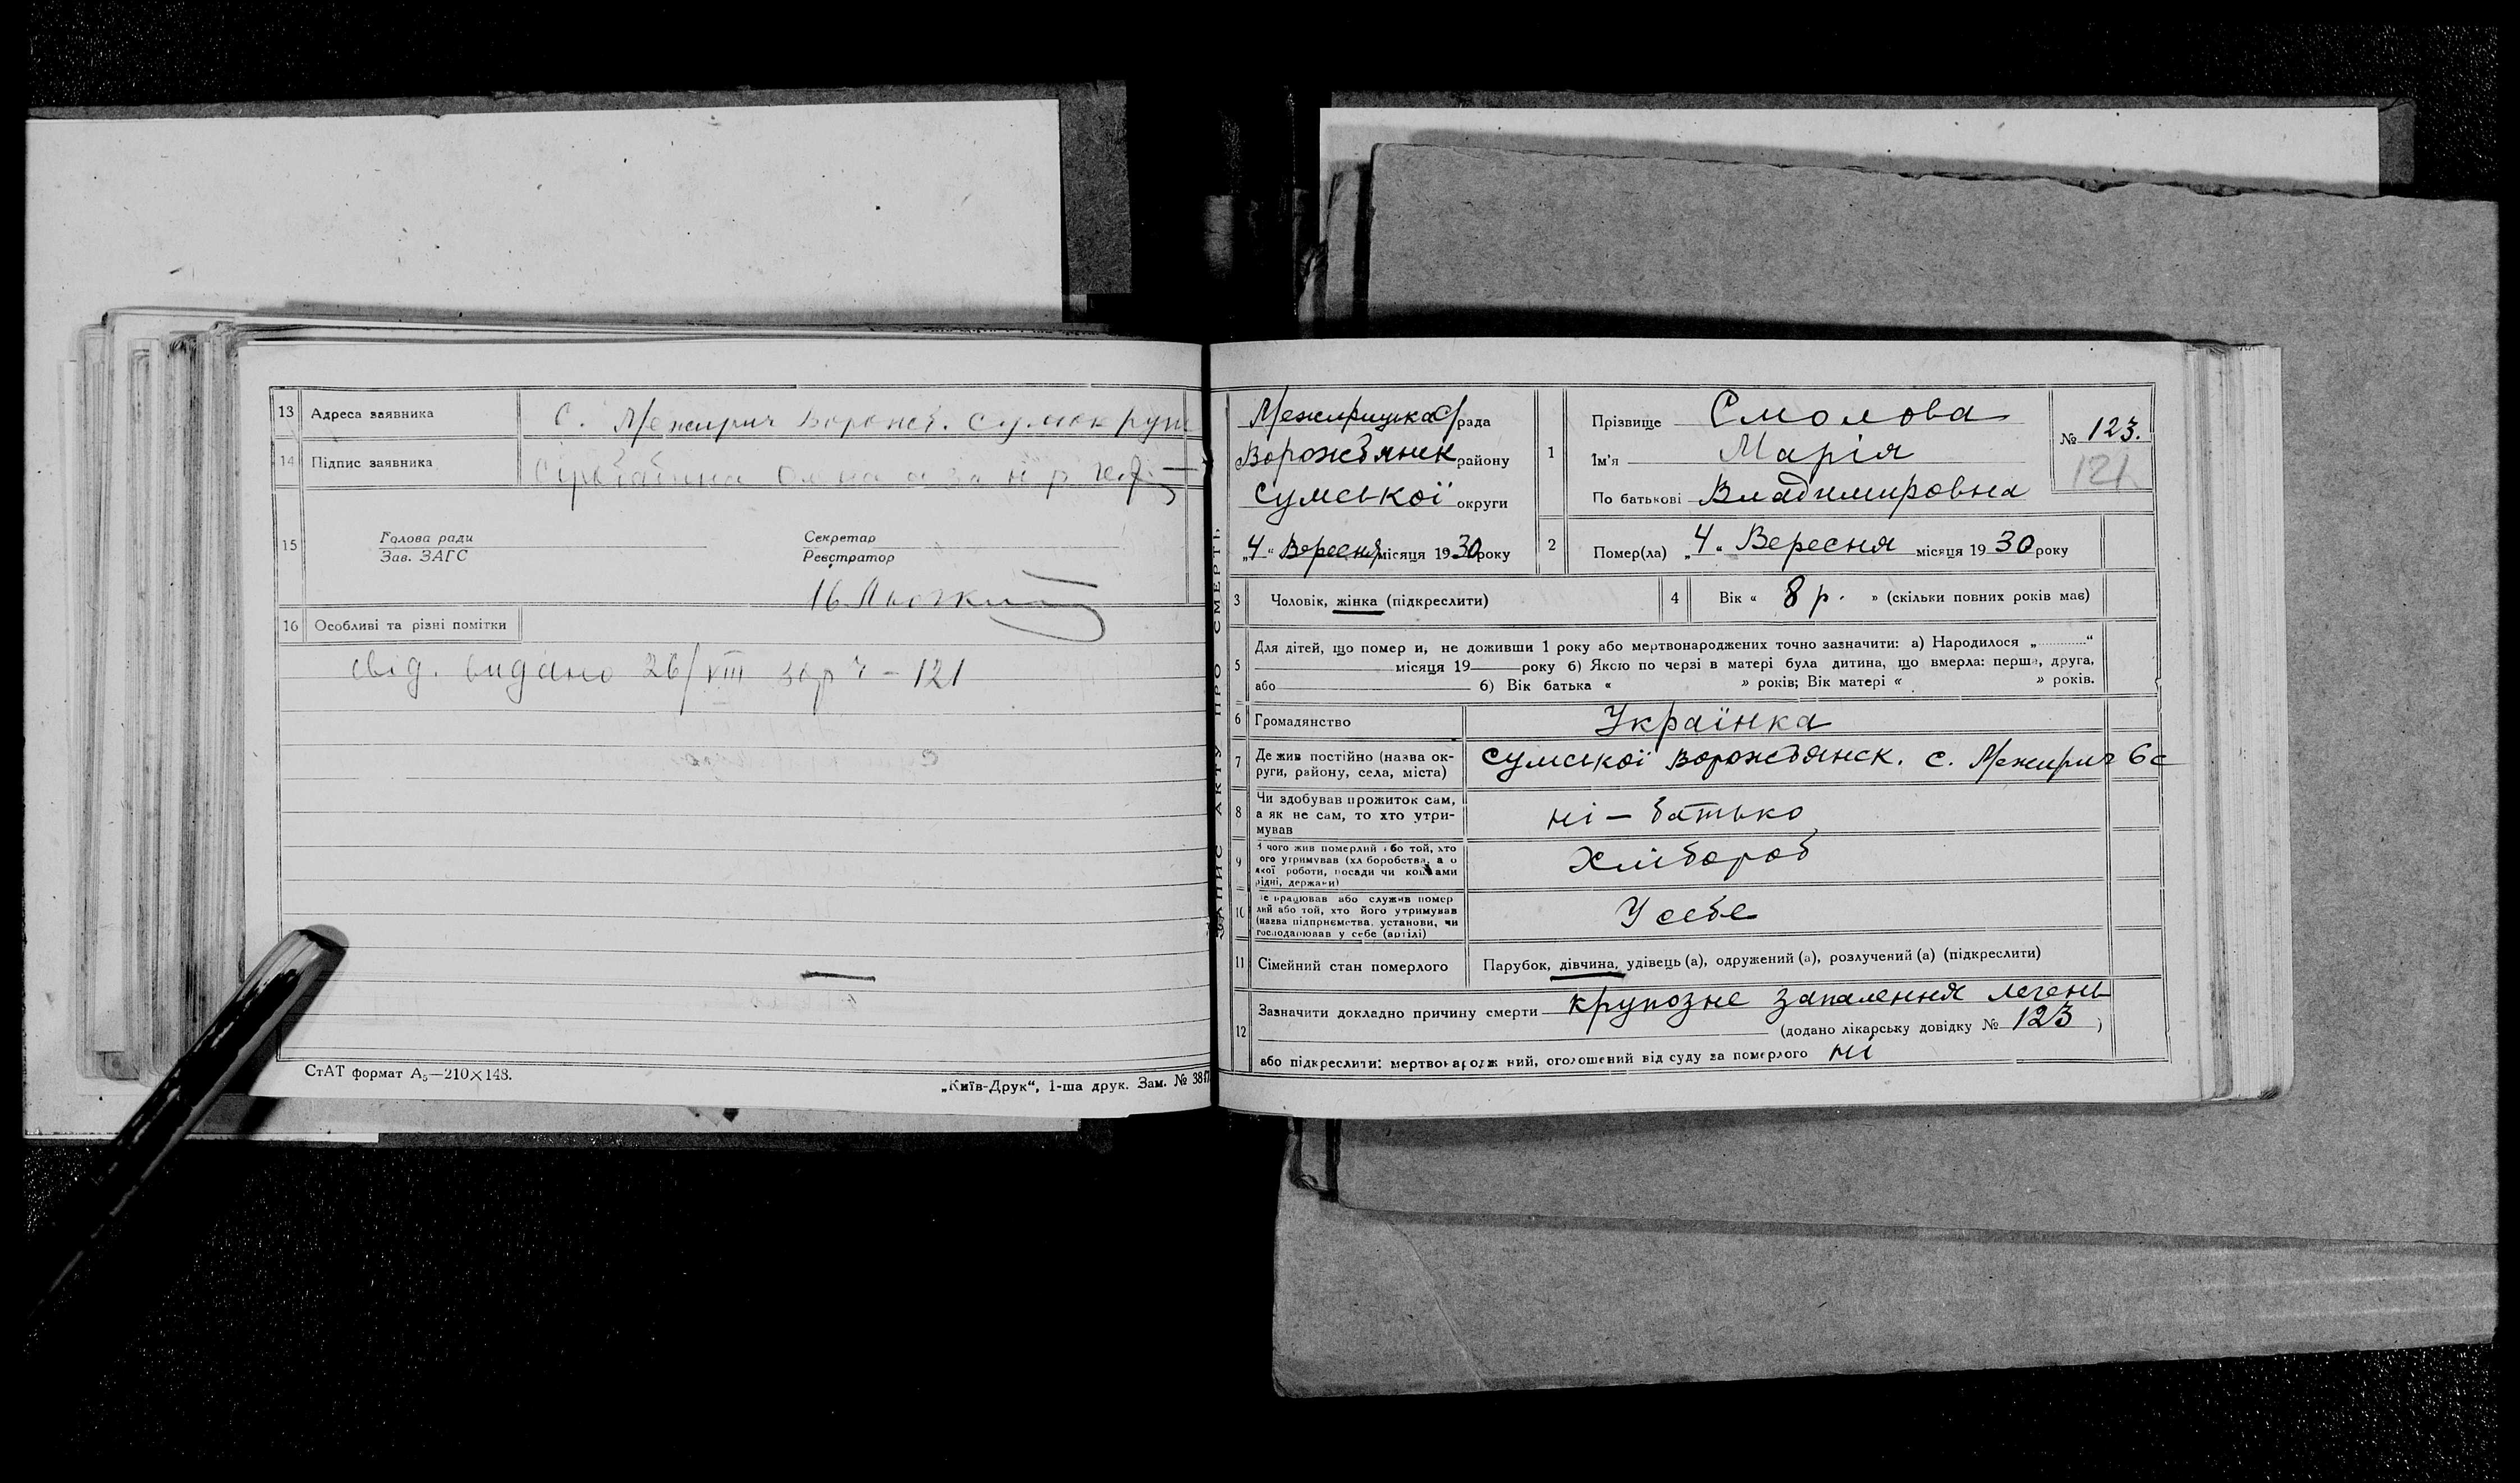 13 Адреса заявника с. Межирич Ворожб. Сумок
14 Підпис заявника
15 Голова ради Секретар
Зав. ЗАГС Реєстратор
16 Особливі та різні помітки
свід. видано 26/VIII 30 р ч - 121
СтАТ формат А₅—210×148.
„Київ-Друк“, 1-ша друк. Зам. № 38
ЗАПИС АКТУ ПРО СМЕРТЬ
Межирицька с/рада
Ворожбянск району
Сумської округи
„4“ Вересня місяця 1930 року
1 Прізвище Смолова
Ім'я Марія
По батькові Владимировна
№ 123.
121
2 Помер(ла) „4“ Вересня місяця 1930 року
3 Чоловік, жінка (підкреслити)
4 Вік « 8 р. » (скільки повних років має)
5 Для дітей, що помер и, не доживши 1 року або мертвонароджених точно зазначити: а) Народилося „ “
місяця 19 року б) Якою по черзі в матері була дитина, що вмерла: перша, друга,
або б) Вік батька « » років; Вік матері « » років.
6 Громадянство Українка
7 Де жив постійно (назва ок-
руги, району, села, міста) Сумської Ворожбянск. с. Межирич 6с
8 Чи здобував прожиток сам,
а як не сам, то хто утри-
мував ні — батько
9 З чого жив померлий або той, хто
ого утримував (хл боробства, а о
якої роботи, посади чи коштами
рідні, держави) Хлібороб
10 е працював або служив помер
лий або той, хто його утримував
(назва підприємства, установи, чи
господарював у себе (артілі) У себе
11 Сімейний стан померлого Парубок, дівчина, удівець (а), одружений (а), розлучений (а) (підкреслити)
12 Зазначити докладно причину смерти крупозне запалення легень
(додано лікарську довідку № 123 )
або підкреслити: мертвонародж ний, оголошений від суду за померлого ні